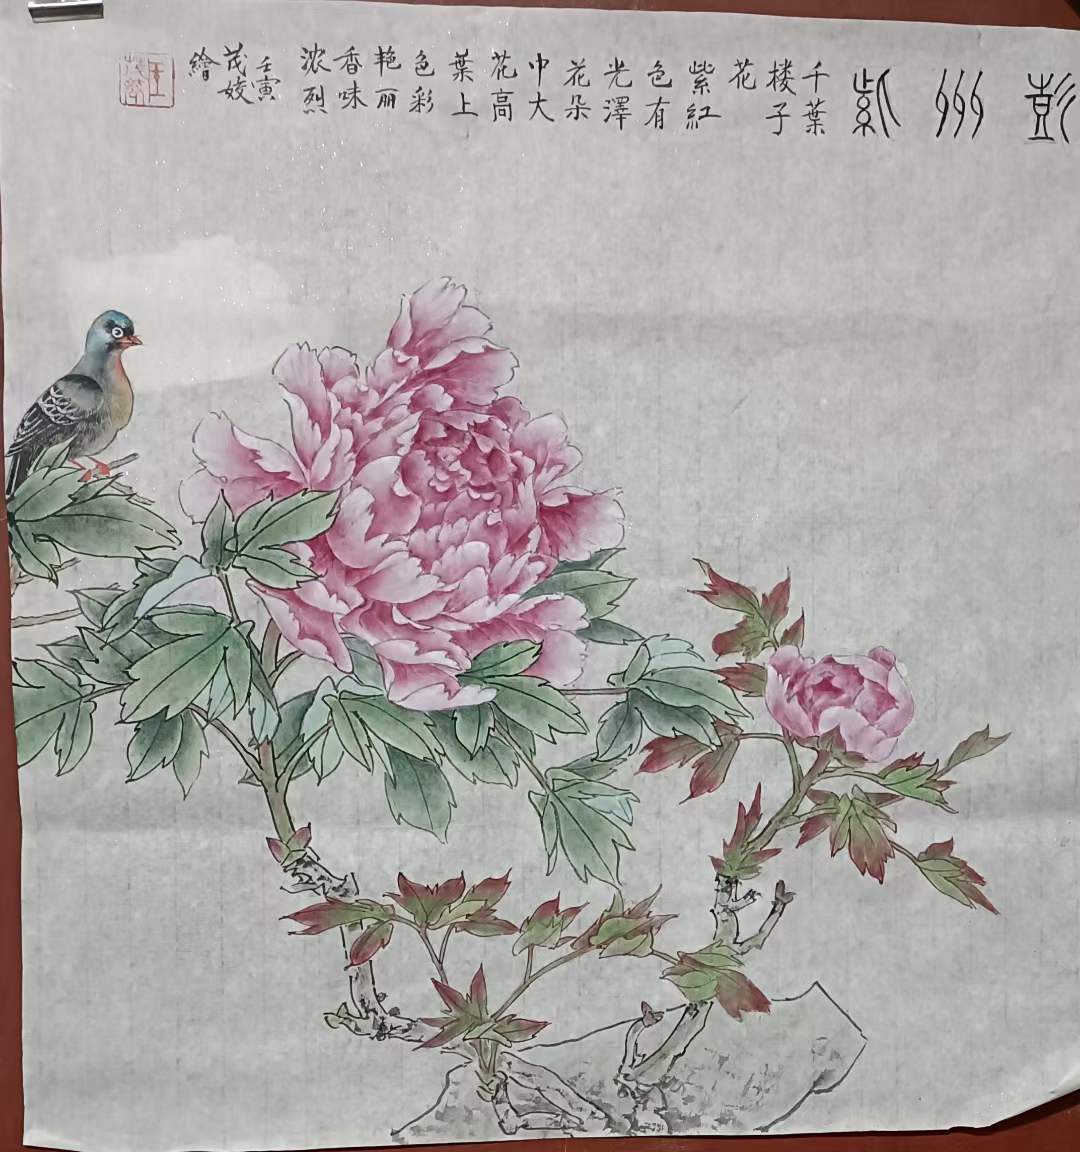 彭州紫
千葉
楼子
花
紫紅
色有
光澤
花朵
中大
花高
葉上
色彩
艳丽
香味
浓烈
壬寅
茂姣
繪